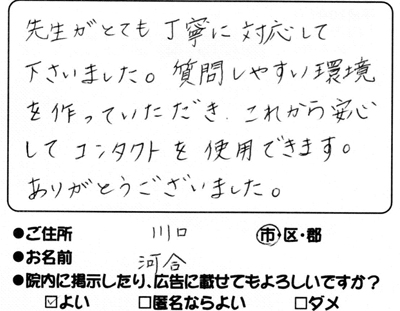 先生がとても丁寧に対応して
下さいました。質問しやすい環境
を作っていただき、これから安心
してコンタクトを使用できます。
ありがとうございました。
●ご住所 川口 市・区・郡
●お名前 河合
●院内に掲示したり、広告に載せてもよろしいですか?
☑よい □匿名ならよい □ダメ